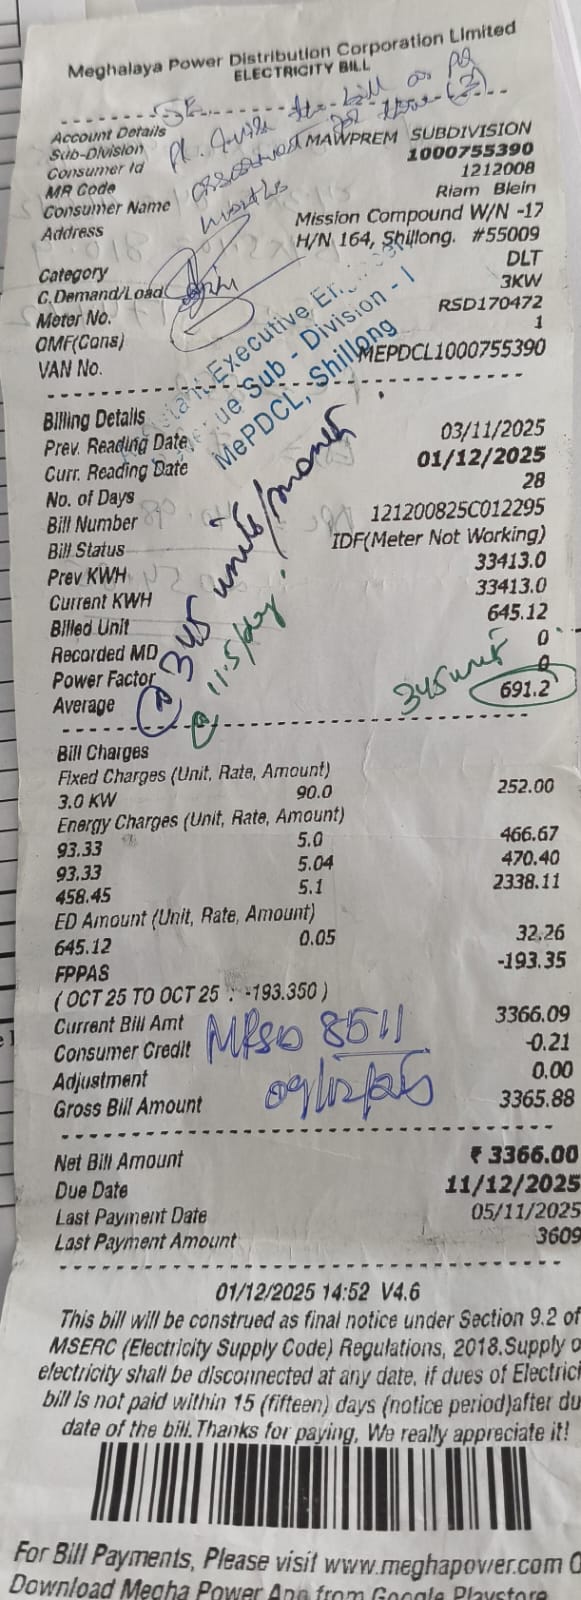 Meghalaya Power Distribution Corporation Limited
ELECTRICITY BILL
Pl. the bill as
assessment for three (3)
months
Account Details
Sub-Division MAWPREM SUBDIVISION
Consumer Id 1000755390
MR Code 1212008
Consumer Name Riam Blein
Address Mission Compound W/N -17
H/N 164, Shillong. #55009
Category DLT
C.Demand/Load 3KW
Meter No. RSD170472
OMF(Cons) 1
VAN No. MEPDCL1000755390
Assistant Executive Engineer
Revenue Sub - Division - I
MePDCL, Shillong
Billing Details
Prev. Reading Date 03/11/2025
Curr. Reading Date 01/12/2025
No. of Days 28
Bill Number 121200825C012295
Bill Status IDF(Meter Not Working)
Prev KWH 33413.0
Current KWH 33413.0
Billed Unit 645.12
Recorded MD 0
Power Factor 0
Average 691.2
@ 345 units/month.
@ 11.5/day.
345 unit
Bill Charges
Fixed Charges (Unit, Rate, Amount)
3.0 KW 90.0 252.00
Energy Charges (Unit, Rate, Amount)
93.33 5.0 466.67
93.33 5.04 470.40
458.45 5.1 2338.11
ED Amount (Unit, Rate, Amount)
645.12 0.05 32.26
FPPAS -193.35
( OCT 25 TO OCT 25 : -193.350 )
Current Bill Amt 3366.09
Consumer Credit -0.21
Adjustment 0.00
Gross Bill Amount 3365.88
MRSD 8511
09/12/25
Net Bill Amount ₹ 3366.00
Due Date 11/12/2025
Last Payment Date 05/11/2025
Last Payment Amount 3609
01/12/2025 14:52 V4.6
This bill will be construed as final notice under Section 9.2 of
MSERC (Electricity Supply Code) Regulations, 2018.Supply o
electricity shall be disconnected at any date, if dues of Electrici
bill is not paid within 15 (fifteen) days (notice period)after du
date of the bill.Thanks for paying, We really appreciate it!
For Bill Payments, Please visit www.meghapower.com O
Download Megha Power App from Google Playstore